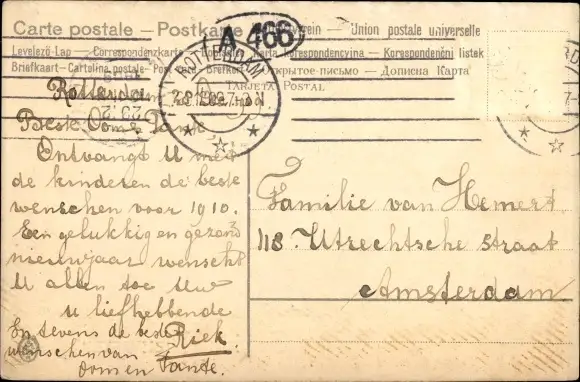 Carte postale – Postkarte – Union postale universelle
A 466
Levelező-Lap – Correspondenzkarte – Karta korespondencyjna – Korespondenční listek
Briefkaart – Cartolina postale – Post card – Brefkort – Открытое письмо – Дописна Карта
TARJETA POSTAL
ROTTERDAM
Rotterdam
Beste Oom & Tante,
Ontvangt U met
de kinderen de beste
wenschen voor 1910.
Een gelukkig en gezond
nieuwjaar wenscht
U allen toe Uw
u liefhebbende
Riek
En tevens de beste
wenschen van
oom en Tante.
Familie van Hemert
118 Utrechtsche straat
Amsterdam